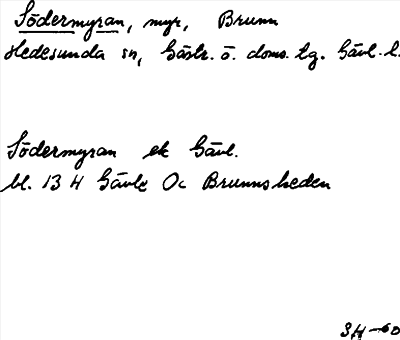 Södermyran, myr, Brunn
Hedesunda sn, Gästr. ö. doms. tg. Gävl. l.
Södermyran ek Gävl.
bl. 13 H Gävle Oc Brunnsheden
3H-60